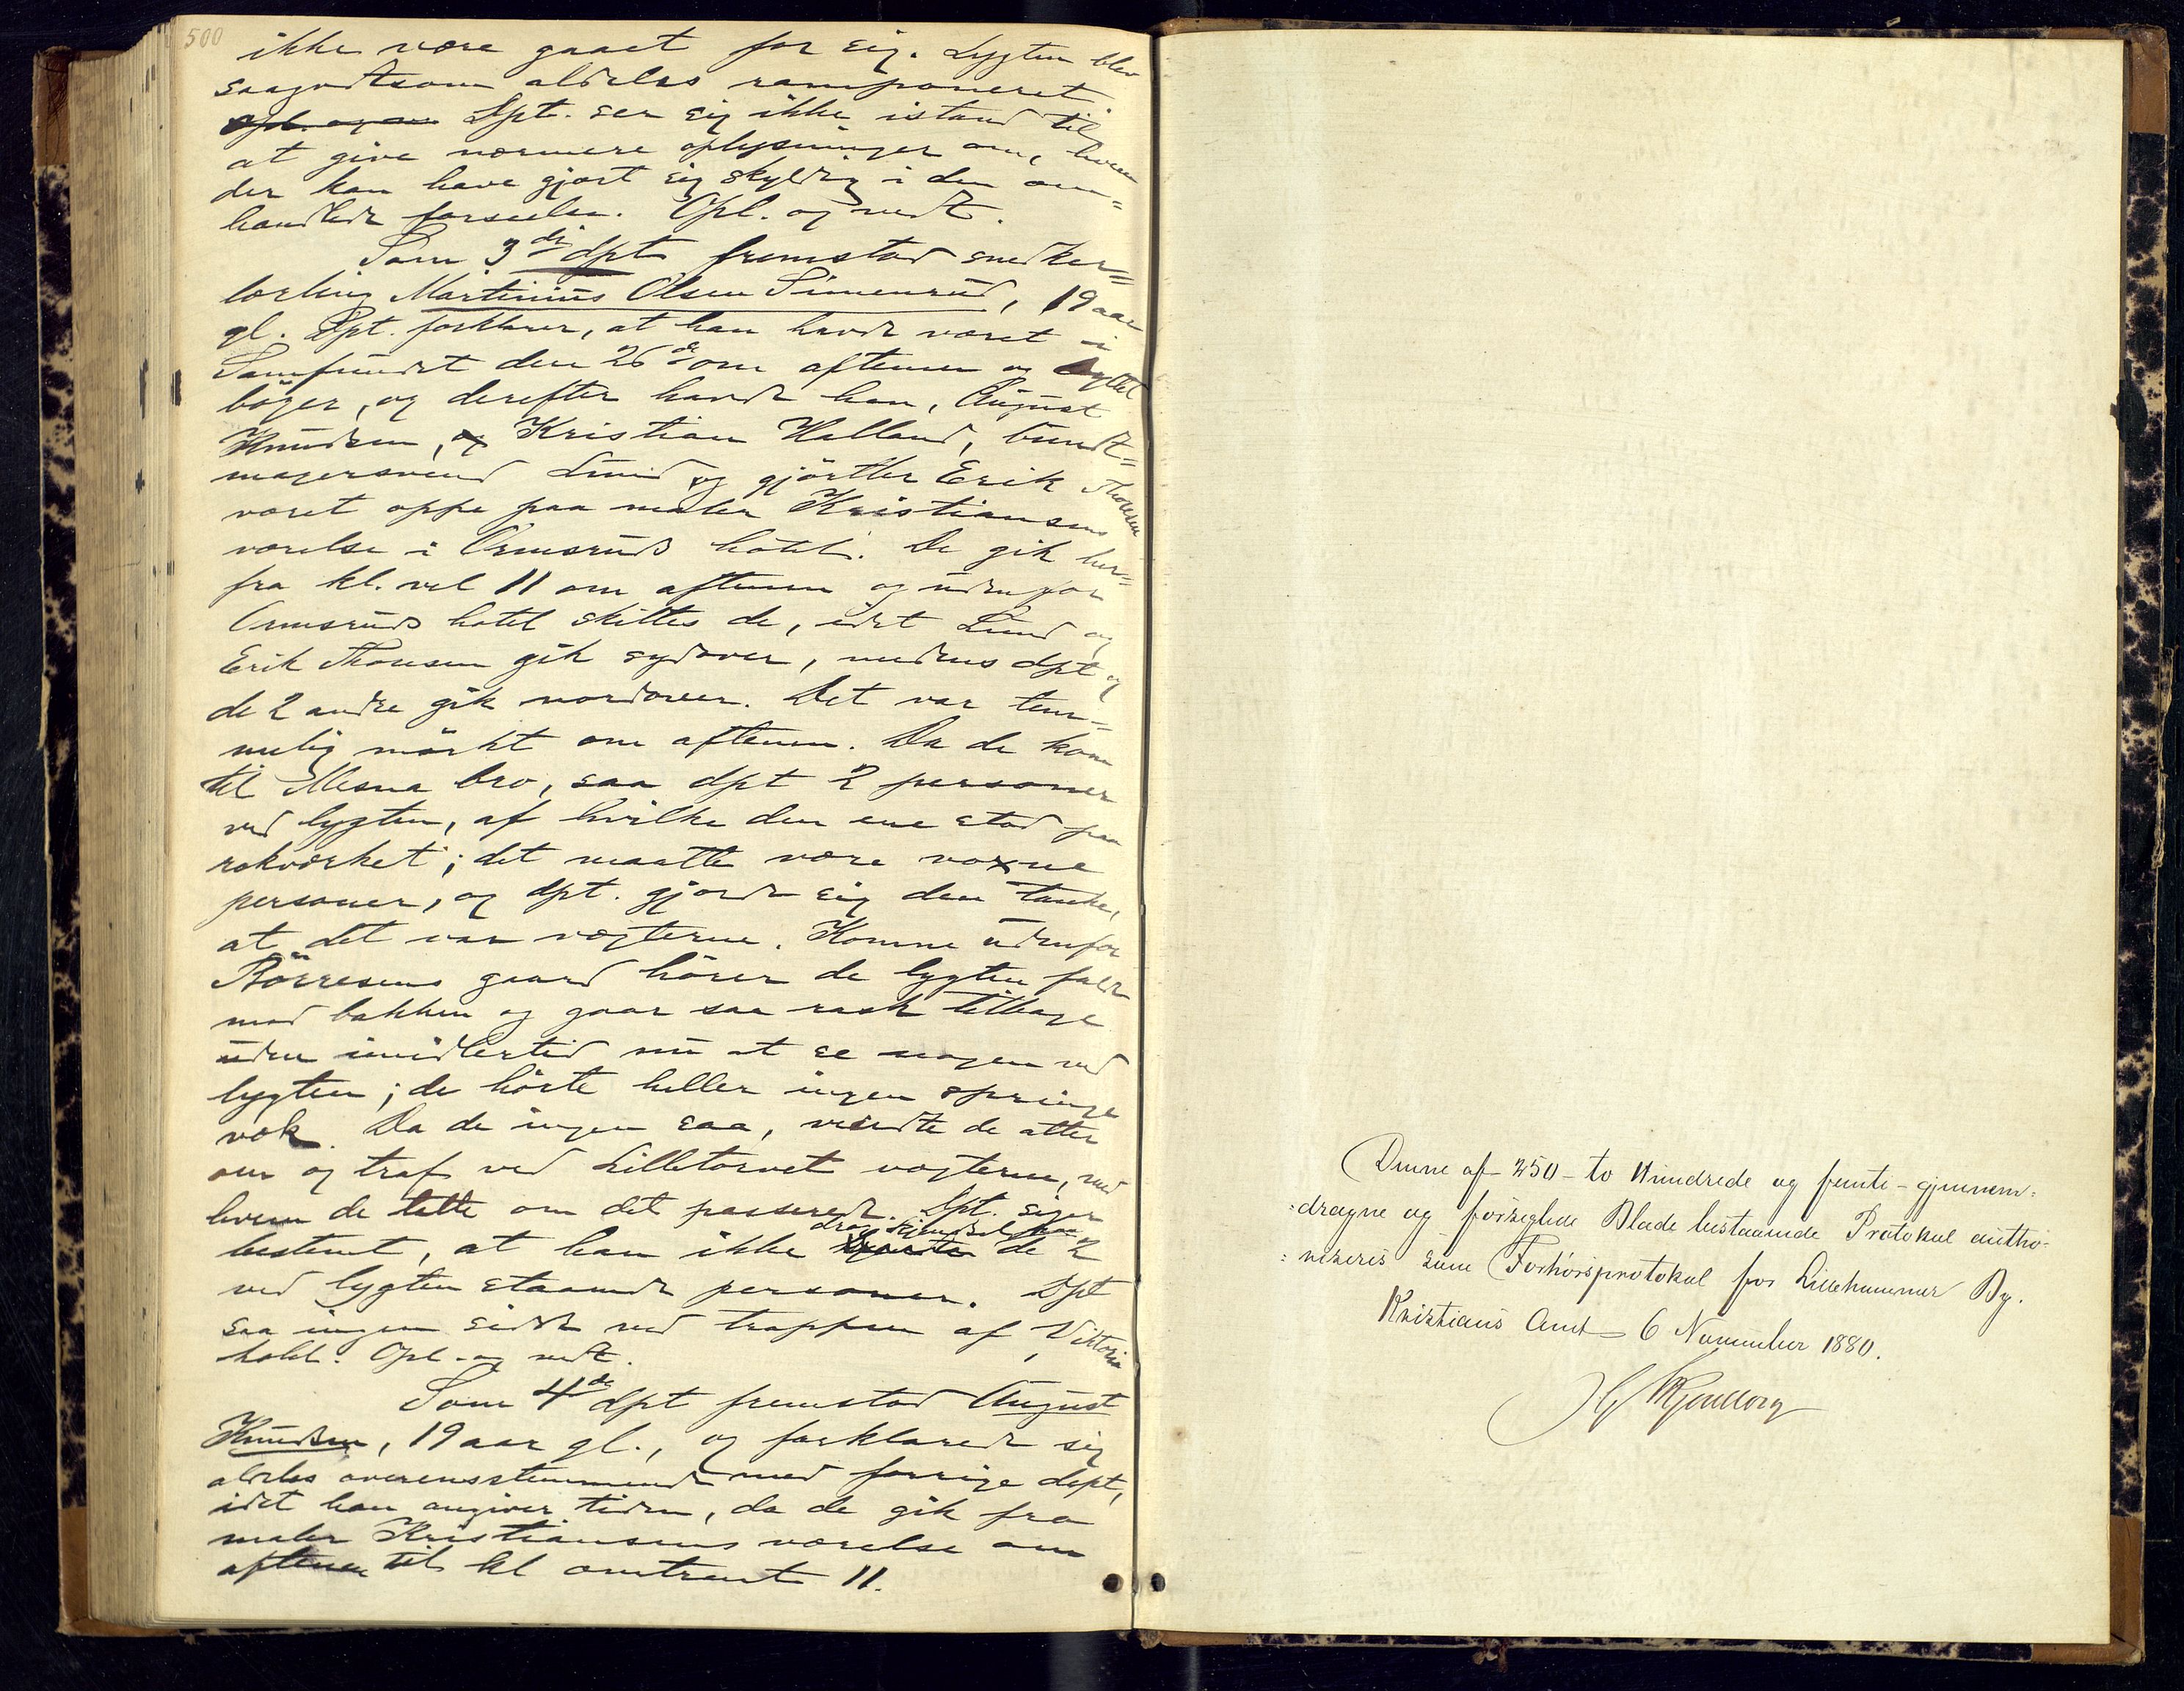 500
ikke være gaaet for sig. Lygten blev
saagodtsom aldeles ramponeret.
Opl. og Dpt. ser sig ikke istand til
at give nærmere oplysninger om, hvem
der kan have gjort sig skyldig i den om=
handlede forseelse. Opl. og vedt.
Som 3die dpt fremstod snedker=
lærling Martinius Olsen Simenrud, 19 aar
gl. Dpt. forklarer, at han havde været i
Samfundet den 26de om aftenen og byttet
bøger, og derefter havde han, August
Knudsen, og Kristian Halland, bundt=
magersvend Lund og gjørtler Erik Thoresen
været oppe paa maler Kristiansens
værelse i Ormsruds hotel. De gik her=
fra kl. vel 11 om aftenen og udenfor
Ormsruds hotel skiltes de, idet Lund og
Erik Thoresen gik sydover, medens dpt og
de 2 andre gik nordover. Det var tem-
melig mörkt om aftenen. Da de kom
til Mesna bro, saa dpt 2 personer
ved lygten, af hvilke den ene stod paa
rækværket; det maatte være voxne
personer, og dpt. gjorde sig den tanke,
at det var vægterne. Komne udenfor
Börresens gaard hörer de lygten falde
mod bakken og gaar saa rask tilbage
uden imidlertid nu at se nogen ved
lygten; de hörte heller ingen springe
væk. Da de ingen saa, vendte de atter
om og traf ved Lilletorvet vægterne, med
hvem de talte om det passerede. Dpt. siger
bestemt, at han ikke drog kjendsel paa de 2
ved lygten staaende personer. Dpt
saa ingen sidde ved trappen af Viktoria
hotel. Opl. og vedt.
Som 4de dpt fremstod August
Knudsen, 19 aar gl., og forklarede sig
aldeles overensstemmende med forrige dept,
idet han angiver tiden, da de gik fra
maler Kristiansens værelse om
aftenen til kl omtrent 11.
Denne af 250 - to Hundrede og femti - gjennem=
=dragne og forseglede Blade bestaaende Protokol autho=
=riseres som Forhörsprotokol for Lillehammer By.
Kristians Amt 6 November 1880.